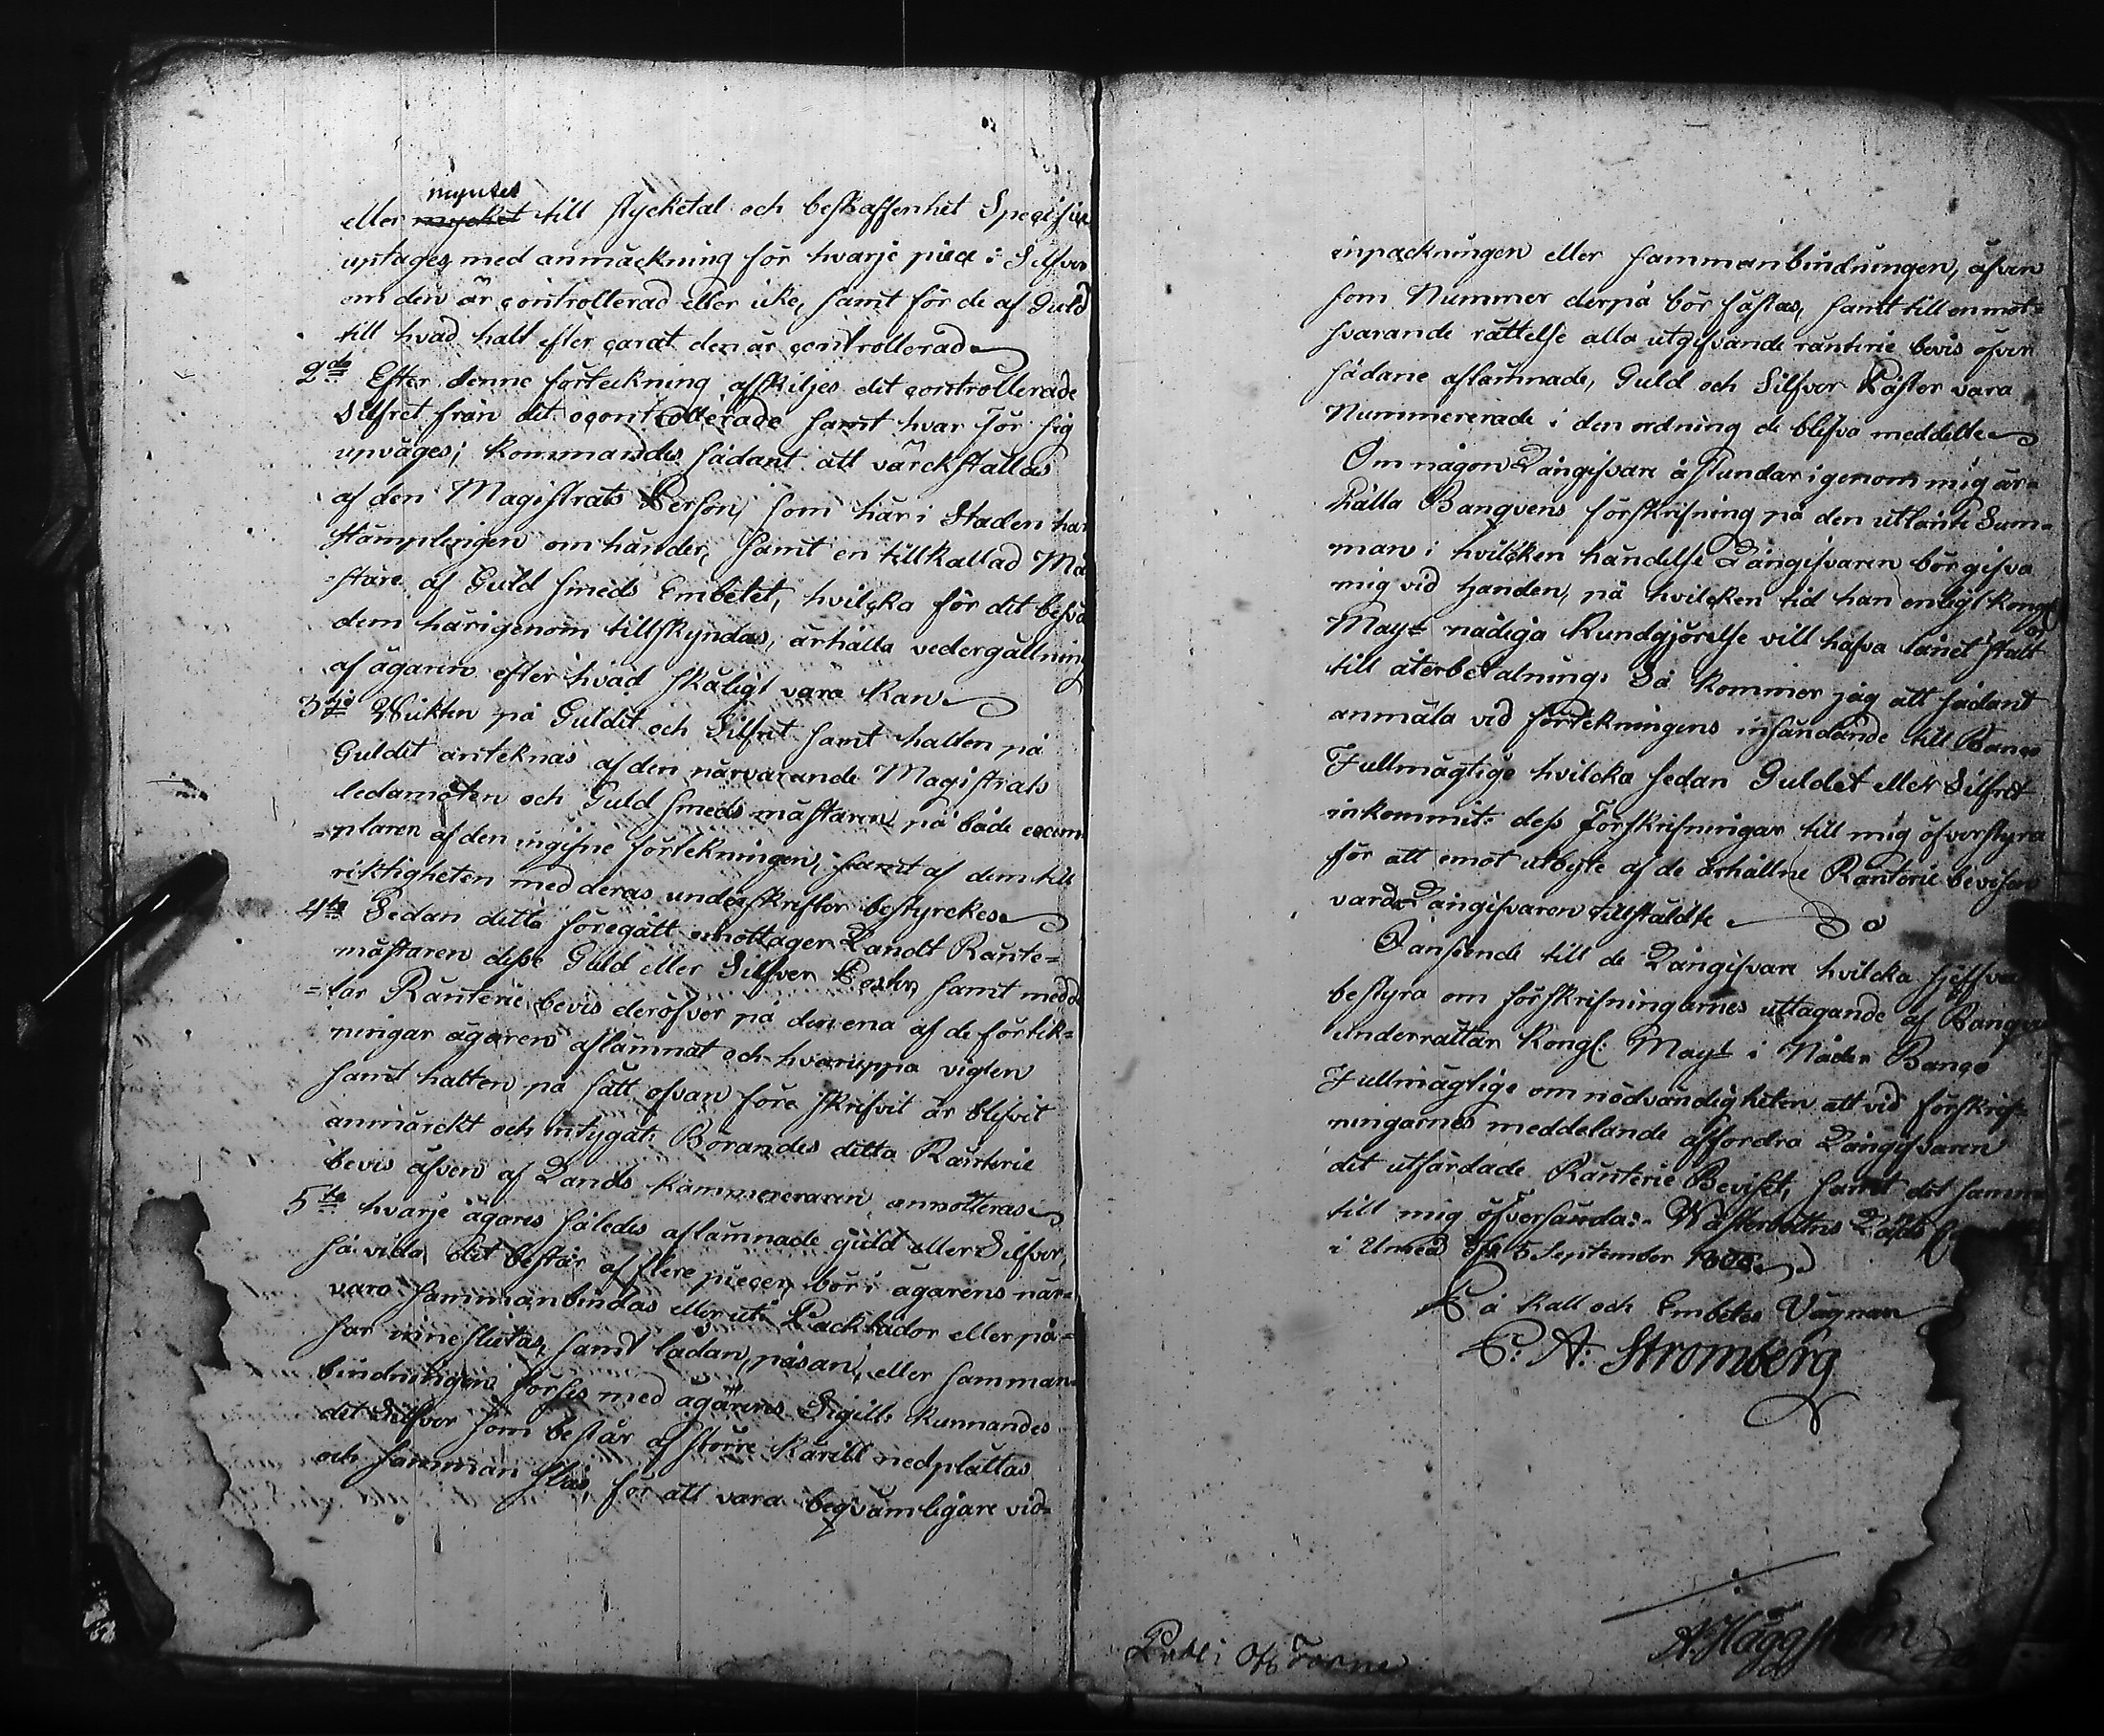 eller mycket till stycketal och beskaffenhet
uptages, med anmärckning för hvarje piece i Silfver
om den är controllerad eller icke, samt för de af Guld
till hvad halt efter carat den är controllerad
2do Efter denne förteckning affskiljes det controllerade
Silfret från det ocontrollerade samt hvar för sig
upväges; kommandes sådant att värckställas
af den Magistrats Person, som här i Staden har
stämplingen om händer, samt en tillkallad Mä
stare af Guld smeds Embetet, hvilcka för det besvär
dem härigenom tillskyndas, ärhålla vedergällning
af ägaren efter hvad skäligt vara kan
3tio Wickten på Guldet och Silfret samt halten på
Guldet anteknas af den närvarande Magistrats
ledamoten och Guld smeds mästaren på både exem
=plaren af den ingifne förtekningen, samt af dem till
riktigheten med deras underskrifter bestyrckes
4to Sedan detta föregått emottager Landt Ränte=
mästaren desse Guld eller Silfver Poster, samt medde
=lar Ränterie bevis deröfver på den ena af de förtek=
ningar ägaren aflämnat och hvaruppa vigten
samt halten på sätt ofvan före skrifvit är blifvit
anmärckt och intygat. Börandes detta Ränterie
bevis äfven af Lands kammereraren annotteras
5to hvarje ägares således aflämnade guld eller Silfver,
så vida det består af flere piecer, bör i ägarens när=
varo sammanbindas eller uti Packlådor eller på=
sar inneslutas, samt lådan, påsan, eller samman=
bindningen förses med ägarens Sigill. kunnandes
det Silfver som består af större kärill nedplattas
och samman slås, för att vara beqvämligare vid=
inpackningen eller sammanbindningen, äfven
som Nummer derpå bör fästas, samt till enmot=
svarande rättelse alla utgifvande ränterie bevis öfver
sådane aflämnade, Guld och Silfver Påster vara
Nummererade i den ordning de blifva meddelte
Om någon Långifvare åstundar igenom mig är=
hålla Banqvens förskrifning på den utlånte Sum=
man i hvilcken händelse Långifvaren bör gifva
mig vid handen, på hvilcken tid han enligt kongl
Mayts nådiga Kundgjörelse vill hafva lånet stält
till återbetalning. Så kommer jag att sådant
anmäla vid förtekningens insändande till Banco
Fullmägtige hvilcka sedan Guldet eller Silfret
inkommit. dess Förskrifningar till mig öfverstyra
för att emot utbyte af de ärhållne Ränterie bevisen
varda Långifvaren tillstäldte
Danseende till de Långifvare hvilcka sjelfva
bestyra om förskrifningarnes uttagande af Banqven
underrättar Kongl. Mayt i Nåder Banco
Fullmägtige om nödvändigheten att vid förskrif=
ningarnes meddelande affordra Långifvaren
det utfärdade Ränterie Beviset, samt det samma
till mig öfversända. Wästerbottns Lands
i Umeå den 5 September 1808
På kall och Embetes Vägnar
P. A. Stromberg
Publ i Öf Torne
A Häggström